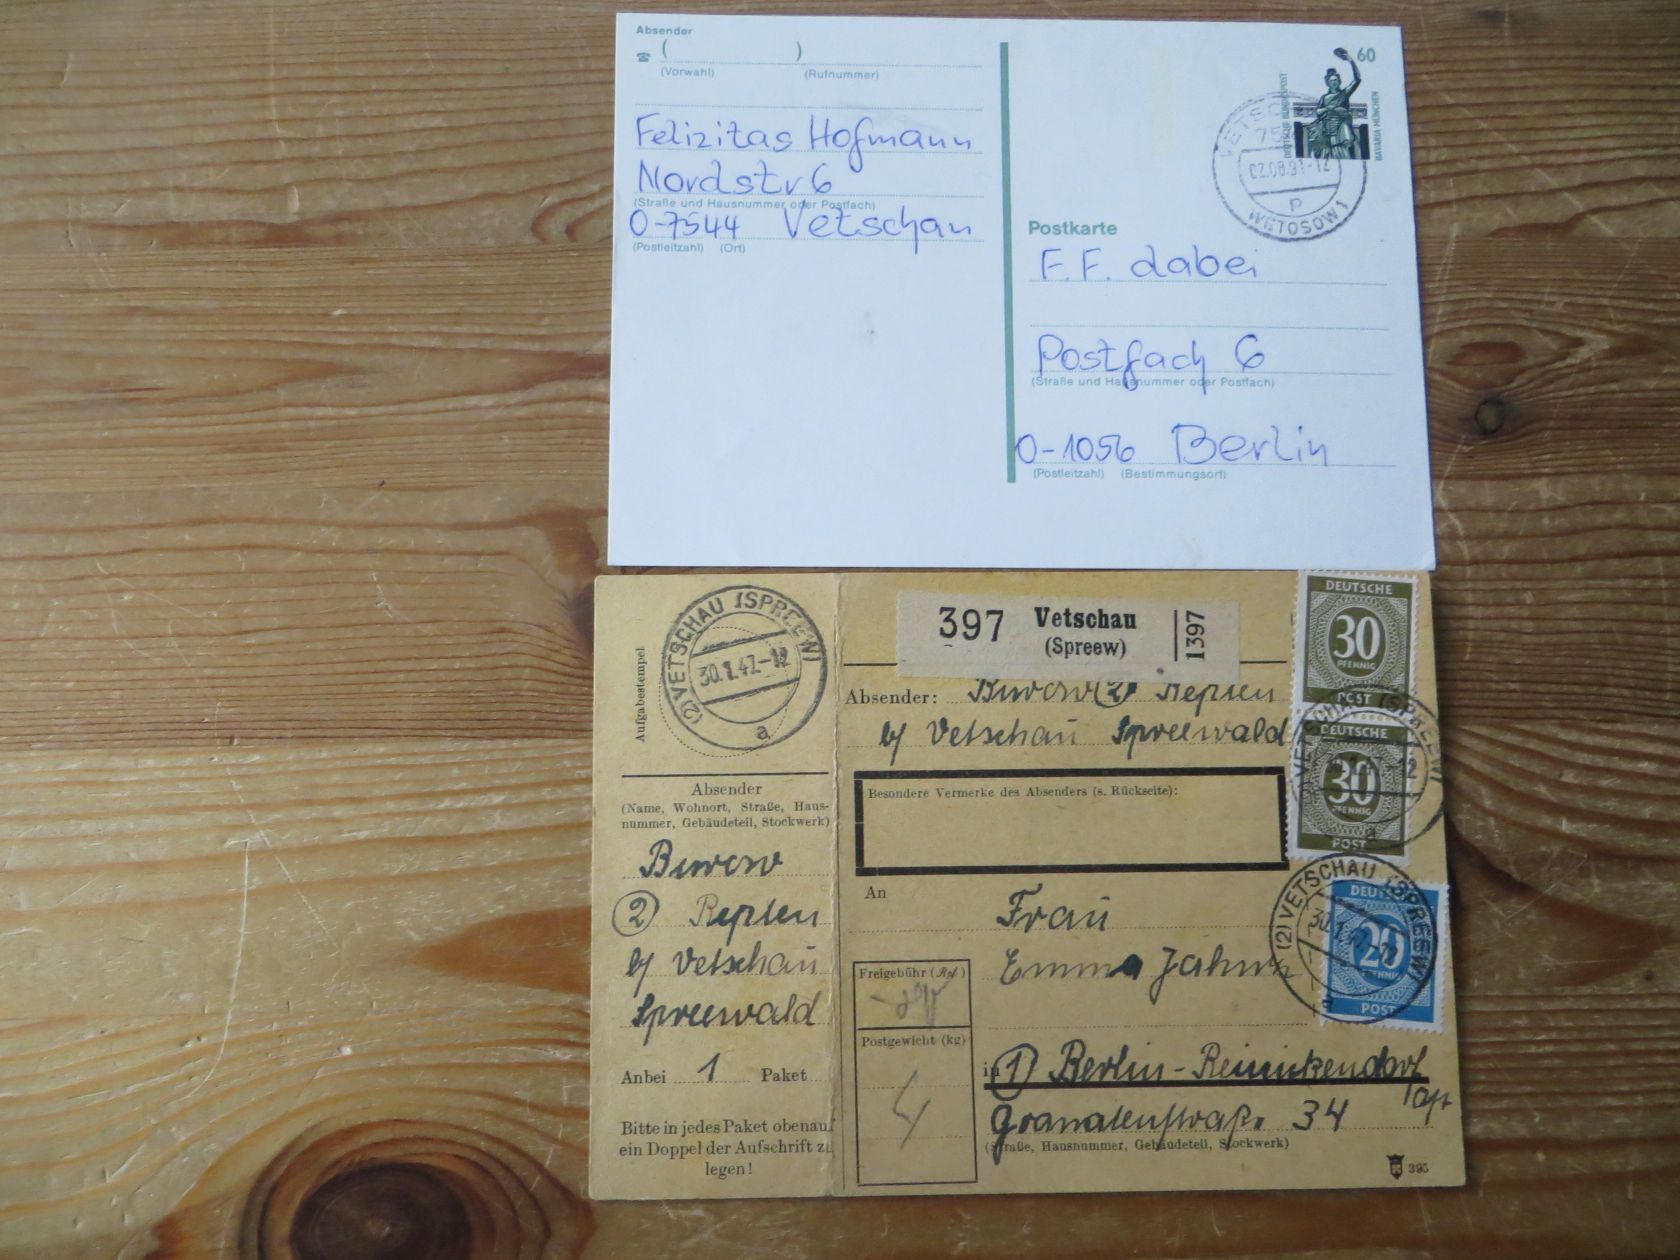 Absender
( )
(Vorwahl) (Rufnummer)
Felizitas Hofmann
Nordstr 6
(Straße und Hausnummer oder Postfach)
O-7544 Vetschau
(Postleitzahl) (Ort)
60
DEUTSCHE BUNDESPOST
BAVARIA MÜNCHEN
VETSC
75
02.08.91-12
p
WETOSOW 1
Postkarte
F.F. dabei
Postfach 6
(Straße und Hausnummer oder Postfach)
O-1056 Berlin
(Postleitzahl) (Bestimmungsort)
Aufgabestempel
(2) VETSCHAU (SPREEW)
30.1.47-12
a
Absender
(Name, Wohnort, Straße, Haus-
nummer, Gebäudeteil, Stockwerk)
Burow
2 Repten
b/ Vetschau
Spreewald
Anbei 1 Paket
Bitte in jedes Paket obenauf
ein Doppel der Aufschrift zu
legen!
397 Vetschau
(Spreew)
1397
Absender: Burow (2) Repten
b/ Vetschau Spreewald
Besondere Vermerke des Absenders (s. Rückseite):
An
Frau
Emma Jahn
Freigebühr (Rpf)
Postgewicht (kg)
4
in (1) Berlin-Reinickendorf
Granatenstraße 34
(Straße, Hausnummer, Gebäudeteil, Stockwerk)
395
DEUTSCHE
30
PFENNIG
POST
DEUTSCHE
30
PFENNIG
POST
VETSCHAU (SPREEW)
12
a
DEUTSCHE
20
PFENNIG
POST
(2) VETSCHAU (SPREEW)
30.1.47-12
a